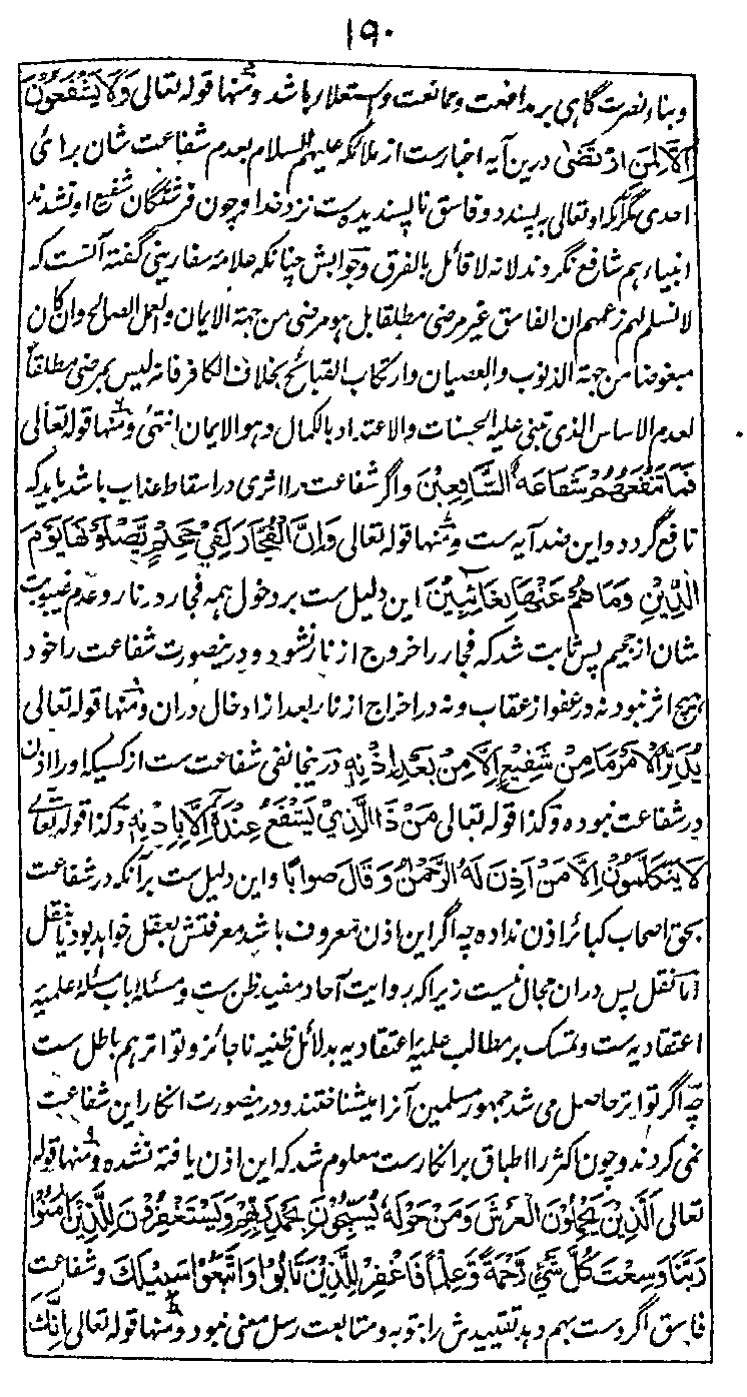 ۱۹۰
وبناء نصرت گاهی بر مدافعت وممانعت واستعلا باشد ومنها قوله تعالی وَلَا يَشْفَعُونَ
إِلَّا لِمَنِ ارْتَضَىٰ درین آیه اخبارست از ملائکه علیهم السلام بعدم شفاعت شان برائی
احدی مگر آنکه او تعالی بپسندد وفاسق ناپسندیده ست نزد خدا وچون فرشتگان شفیع او نشدند
انبیاء هم شافع نگردند لانه لا قائل بالفرق وجوابش چنانکه علامه سفارینی گفته آنست که
لا نسلم لهم زعمهم ان الفاسق غیر مرضی مطلقا بل هو مرضی من جهة الایمان والعمل الصالح وان کان
مبغوضا من جهة الذنوب والعصیان وارتکاب القبائح بخلاف الکافر فانه لیس بمرضی مطلقا
لعدم الاساس الذی تبنی علیه الحسنات والاعتداد بالکمال وهو الایمان انتهی ومنها قوله تعالی
فَمَا تَنْفَعُهُمْ شَفَاعَةُ الشَّافِعِينَ واگر شفاعت را اثری در اسقاط عذاب باشد باید که
نافع گردد واین ضد آیه ست ومنها قوله تعالی وَإِنَّ الْفُجَّارَ لَفِي جَحِيمٍ يَصْلَوْنَهَا يَوْمَ
الدِّينِ وَمَا هُمْ عَنْهَا بِغَائِبِينَ این دلیل ست بر دخول همه فجار در نار وعدم غیبوبت
شان از جحیم پس ثابت شد که فجار را خروج از نار نشود ودرینصورت شفاعت را خود
هیچ اثر نبود نه در عفو از عقاب ونه در اخراج از نار بعد از ادخال دران ومنها قوله تعالی
يُدَبِّرُ الْأَمْرَ مَا مِنْ شَفِيعٍ إِلَّا مِنْ بَعْدِ إِذْنِهِ درینجا نفی شفاعت ست از کسیکه او را اذن
در شفاعت نبوده وکذا قوله تعالی مَنْ ذَا الَّذِي يَشْفَعُ عِنْدَهُ إِلَّا بِإِذْنِهِ وکذا قوله تعالی
لَا يَتَكَلَّمُونَ إِلَّا مَنْ أَذِنَ لَهُ الرَّحْمَنُ وَقَالَ صَوَابًا واین دلیل ست برآنکه در شفاعت
بحق اصحاب کبائر اذن نداده چه اگر این اذن معروف باشد معرفتش بعقل خواهد بود یا بنقل
اما نقل پس دران مجال نیست زیرا که روایت آحاد مفید ظن ست ومسئله باب مسئله علمیه
اعتقادیه ست وتمسک بر مطالب علمیه اعتقادیه بدلائل ظنیه ناجائز وتواتر هم باطل ست
چه اگر تواتر حاصل می شد جمهور مسلمین آنرا میشناختند ودرینصورت انکار این شفاعت
نمی کردند وچون اکثر را اطباق بر انکارست معلوم شد که این اذن یافته نشده ومنها قوله
تعالی الَّذِينَ يَحْمِلُونَ الْعَرْشَ وَمَنْ حَوْلَهُ يُسَبِّحُونَ بِحَمْدِ رَبِّهِمْ وَيَسْتَغْفِرُونَ لِلَّذِينَ آمَنُوا
رَبَّنَا وَسِعْتَ كُلَّ شَيْءٍ رَحْمَةً وَعِلْمًا فَاغْفِرْ لِلَّذِينَ تَابُوا وَاتَّبَعُوا سَبِيلَكَ وشفاعت
فاسق اگر دست بهم دهد تقییدش را بتوبه ومتابعت رسل معنی نبود ومنها قوله تعالی إِنَّكَ